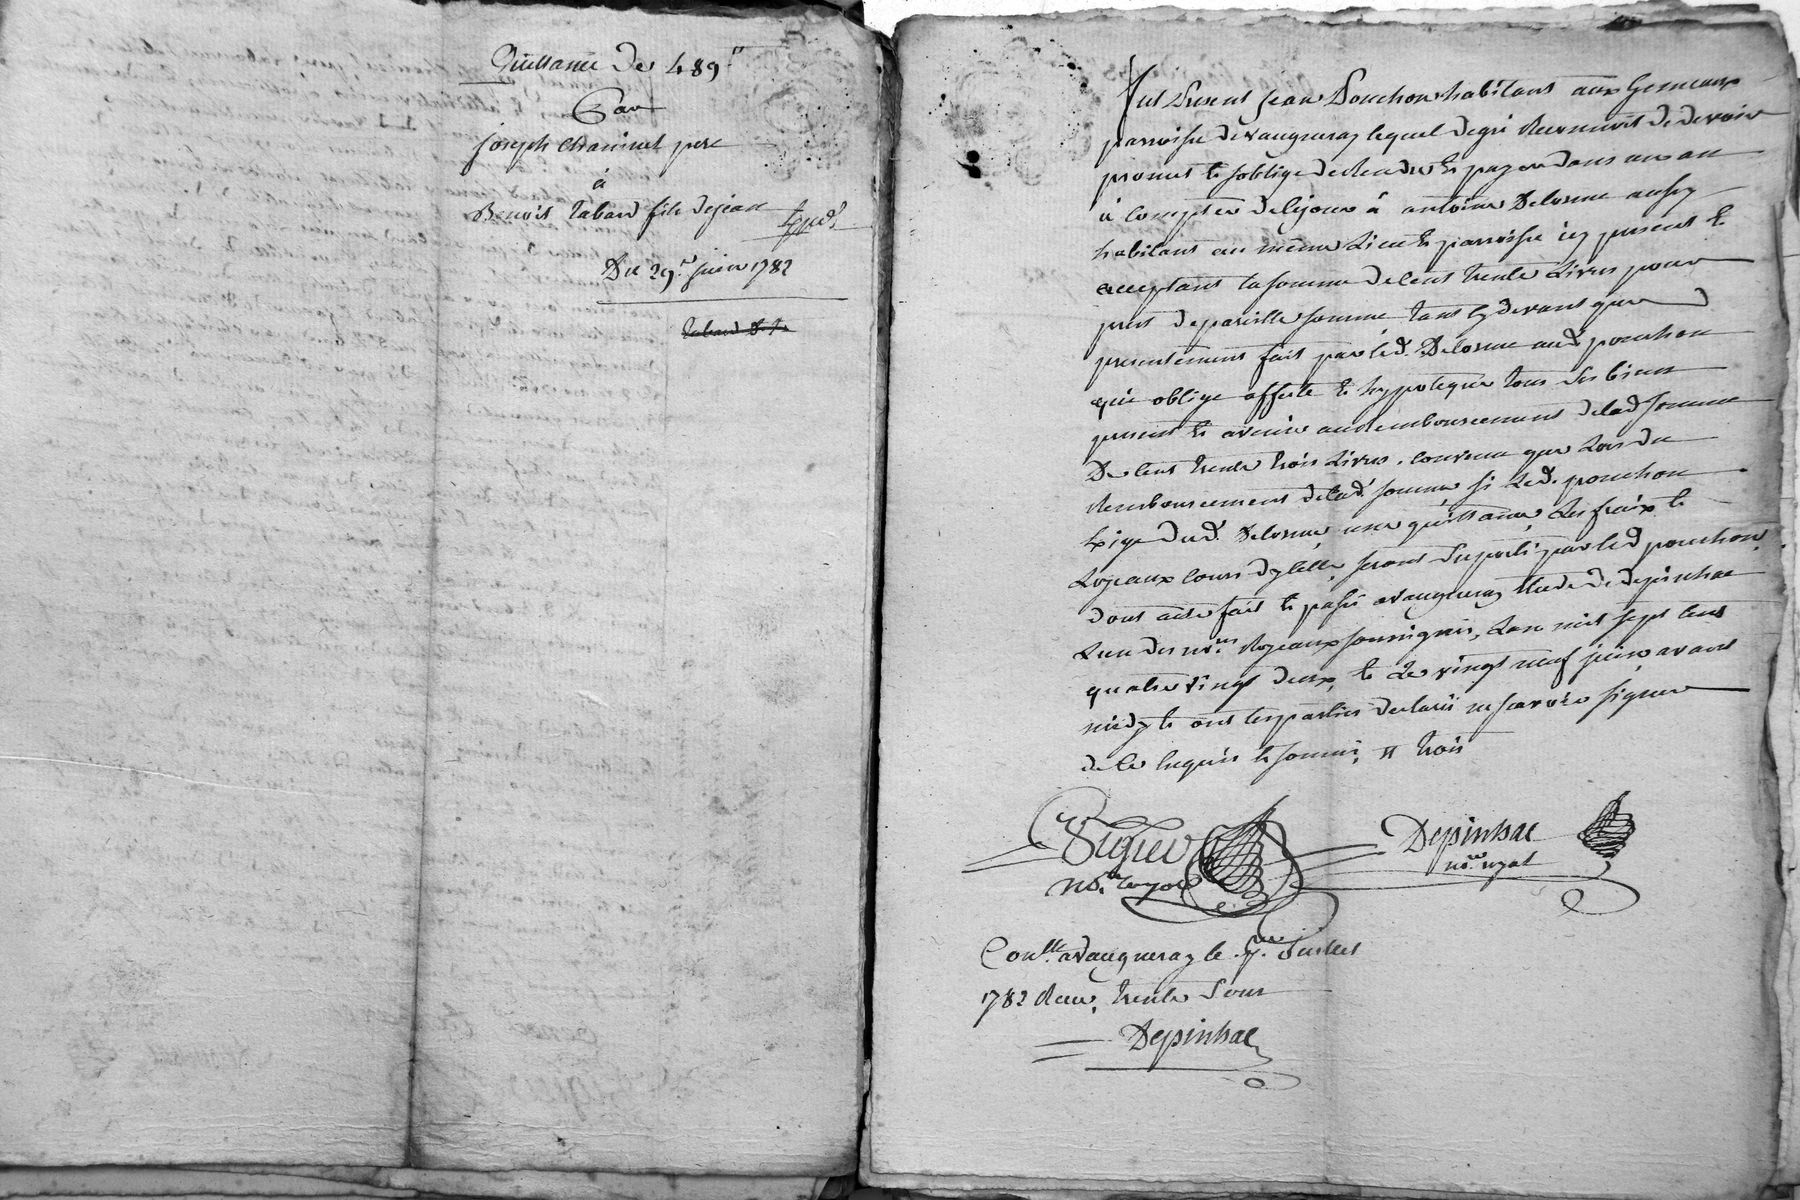 Quittance de 489ᵗᵗ
Par
joseph chaninet pere
à
Benoit Tabard fils dejean Expedᵉ
Du 29.ᵉ juin 1782
fut Present jean Pouchon habitant aux Gemeaux
parroisse de vaugneray lequel degré Reconnoit de devoir
promet et soblige de Rendre et payer dans un an
à compter de cejour à antoine Delorme aussy
habitant au même Lieu et parroisse icy present et
acceptant la somme de cent trente Livres pour
prest de pareille somme tant cy devant que
presentement fait par led. Delorme aud pouchon
qui oblige affecte et hypoteque tous ses biens
present et avenir au Remboursement delad somme
De cent trente trois Livres. convenu que Lors du
Remboursement delad. somme si Led. pouchon
Exige dud. Delorme une quittance Les fraix et
Loyeaux couts dycelle, seront suporté par led pouchon,
dont acte fait et passé avaugneray Etude de depinhac
Lun des no.ʳᵉˢ Royeaux soussignés, Lan mil sept cent
quatre vingt deux, et Le vingt neuf juin avant
midy et ont les parties declaré ne scavoir signer
de ce enquis et sommé, # trois
no.ʳᵉ royal
Depinhac
no.ʳᵉ royal
Con.ˡˡᵉ avaugneray le 7.ᵐᵉ Juillet
1782 Recu, trente Sous
Depinhac